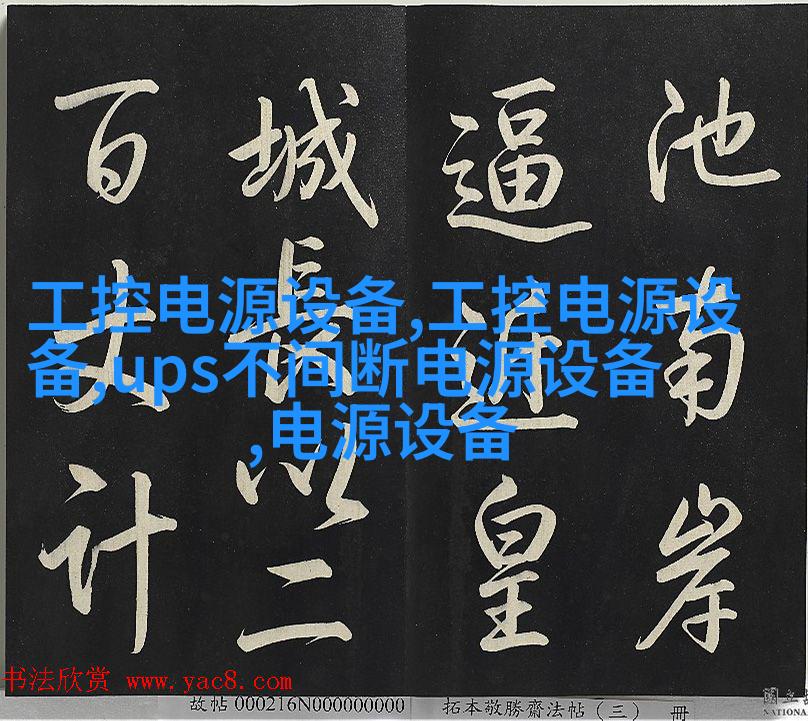 池南岸
逼近皇
城長以二
百丈計
工控电源设备,工控电源设
备,ups不间断电源设备
,电源设备
书法欣赏 www.yac8.com
故帖 000216N000000000
拓本敬勝齋法帖（三） 冊
國立
NATIONA